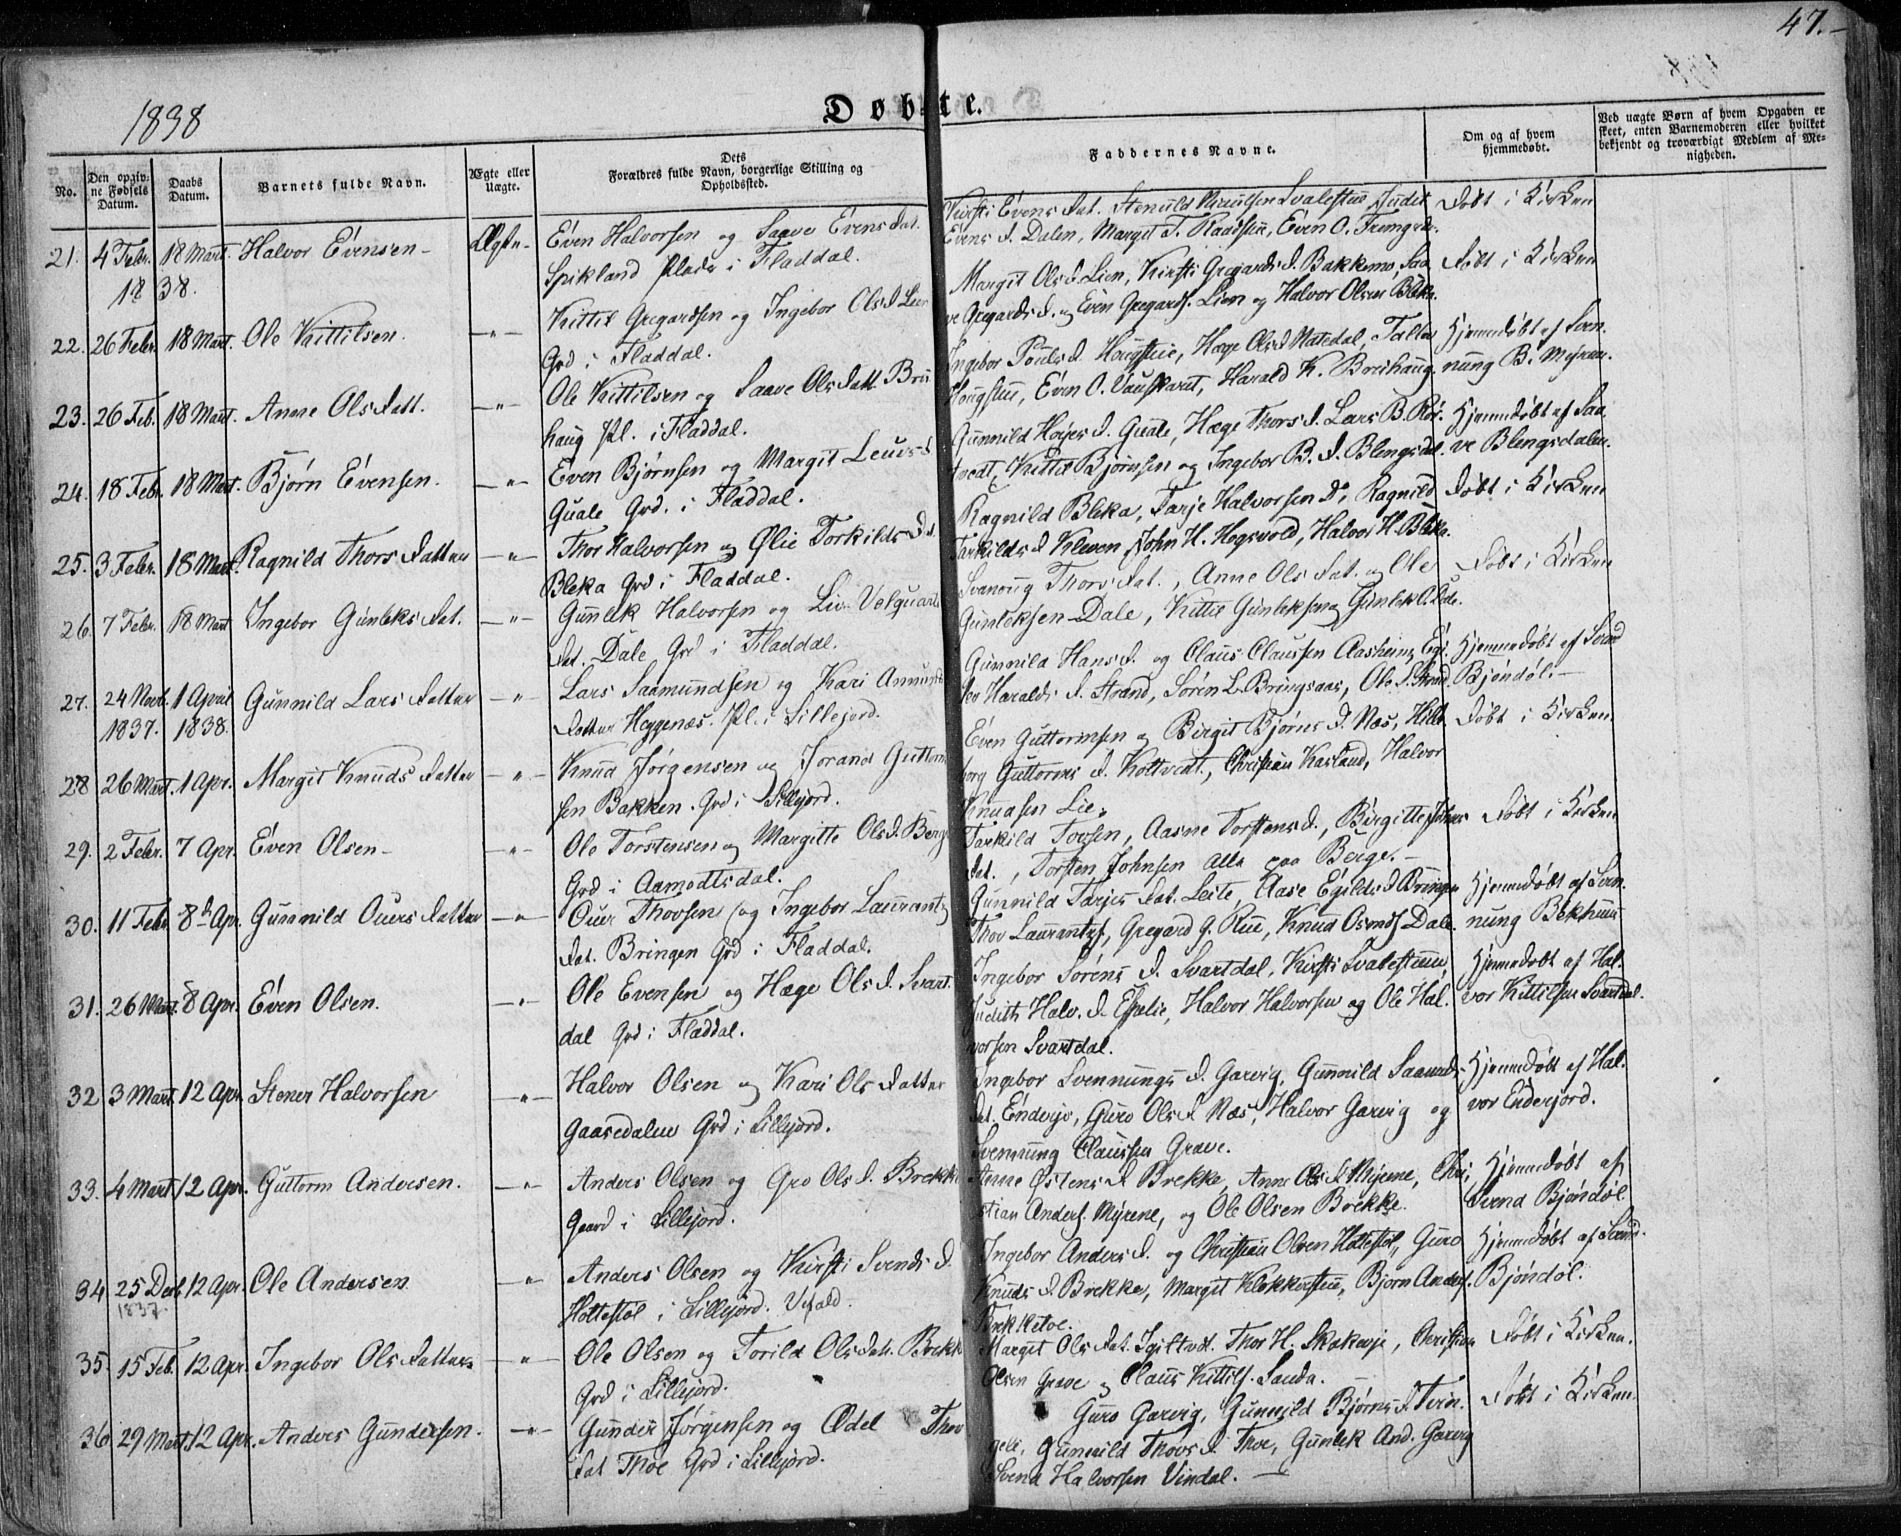 47.
1838
Døbte.
No.
Den opgivne Fødsels Datum.
Daabs Datum.
Barnets fulde Navn.
Ægte eller Uægte.
Dets Forældres fulde Navn, borgerlige Stilling og Opholdssted.
Faddernes Navne.
Om og af hvem hjemmedøbt.
Ved uægte Børn af hvem Opgaven er skeet, enten Barnemoderen eller hvilket bekjendt og troværdigt Medlem af Menigheden.
21. 4 Febr. 1838. 18 Mart. Halvor Evensen Ægte
Even Halvorsen og Saave Evens Dat.
Spikland Plads i Fladdal.
Kirsti Evens Dat. Svalestue Judit
Evens D. Dalen, Margit T. Even O.
Døbt i Kirken
22. 26 Febr. 18 Mart. Ole Kittilsen. —"—
Kittil Gregardsen og Ingebor Ols D. Lien
Grd i Fladdal.
Margit Ols D. Lien, Kirsti Gregards D. Bakkemo, Saa
ve Gregards D. og Even Gregards. Lien og Halvor Olsen Bleka.
Døbt i Kirken
23. 26 Feb. 18 Mart. Anne Ols Datt. —"—
Ole Kittilsen og Saave Ols Datt. Brei
haug Pl. i Fladdal.
Ingebor Pouls D. Hougstue, Hæge Ols D. Natedal,
Hougstue, Even O. Harald K. Breihaug
Hjemmedøbt af Sven
nung B. Myran.
24. 18 Febr. 18 Mart. Bjørn Evensen. —"—
Even Bjørnsen og Margit D.
Quale Grd. i Fladdal.
Gunnild D. Quale, Hæge Thors D. Lars B. Røi
tvedt, Kittil Bjørnsen og Ingebor B. D. Blengsdal.
Hjemmedøbt af Saa
ve Blengsdalen.
25. 3 Febr. 18 Mart. Ragnild Thors Datter —"—
Thor Halvorsen og Ølie Torkilds Dat.
Bleka Grd i Fladdal.
Ragnild Bleka, Tarje Halvorsen Do, Ragnild
Tarkilds D. Kleven, John H. Hegsvold, Halvor H. Bleka.
Døbt i Kirken
26. 7 Febr. 18 Mart. Ingebor Gunleks Dat. —"—
Gunlek Halvorsen og Liv
Dat. Dale Grd i Fladdal.
Svanoug Thors Dat., Anne Ols Dat. og Ole
Gunleksen Dale, Kittil Gunleksen og Gunlek O. Dale.
Døbt i Kirken
27. 24 Novb. 1837. 1 April 1838. Gunnild Lars Datter —"—
Lars Saamundsen og Kari Amunds
Datter Heggenæs. Pl. i Sillejord.
Gunnild Hans D. og Claus Claussen Aasheim,
Haralds D. Strand, Søren L. Bringsaas, Ole S. Strand.
Hjemmedøbt af Svend
Bjøndøl.—
28 26 Mart. 1 Apr. Margit Knuds Datter —"—
Knud Jørgensen og Jorand Guttorm
sen Bakken. Grd i Sillejord.
Even Guttormsen og Birgit Bjørns D. Næs, Hille
borg Guttorms D. Kottvedt, Christian Kasland, Halvor
Knudsen Lie.
Døbt i Kirken.
29. 2 Febr. 7 Apr. Even Olsen —"—
Ole Torstensen og Margitte Ols D. Berge
Grd i Aamodtsdal.
Tarkild Tovsen, Aasne Torstens D., Birgitte Johns
Dat., Torsten Johnsen alle paa Berge.—
Døbt i Kirken
30. 11 Febr. 8de Apr. Gunnild Ouers Datter —"—
Ouer Thovsen og Ingebor Laurantz
Dat. Bringen Grd i Fladdal.
Gunnild Tarjes Dat. Leite, Aase Egilds D. Bringen
Thov Laurantzs., Gregard G. Rue, Knud Osmds. Dale.
Hjemmedøbt af Sven
nung Bekhuus
31. 26 Mart. 8 Apr. Even Olsen. —"—
Ole Evensen og Hæge Ols D. Svart
dal Grd i Fladdal.
Ingebor Sørens D. Svartdal, Kirsti Svalestuen
Judith Halv. D. Espelie, Halvor Halvorsen og Ole Hal
vorsen Svartdal.
Hjemmedøbt af Hal
vor Kittilsen Svartdal.
32 3 Mart. 12 Apr. Stener Halvorsen —"—
Halvor Olsen og Kari Ols Datter
Gaasedalen Grd i Sillejord.
Ingebor Svennungs D. Garvig, Gunnild Saamds
Dat. Enderjo, Guro Ols D. Næs, Halvor Garvig og
Svennung Claussen Grave.
Hjemmedøbt af Hal
vor Enderjord.
33. 4 Mart. 12 Apr. Guttorm Andersen. —"—
Anders Olsen og Gro Ols D. Brekke
Gaard i Sillejord.
Anne Østens D. Brekke, Anne Ols D. Myrene, Chri
stian Anders. Myrene, og Ole Olsen Brekke.
Hjemmedøbt af
Svend Bjøndøl.
34 25 Decb. 1837. 12 Apr. Ole Andersen —"—
Anders Olsen og Kirsti Svends D.
Hottestøl i Sillejord.
Ingebor Anders D. og Christian Olsen Hottestøl, Guro
Knuds D. Brekke, Margit Klokkerstue, Bjørn Anders.
Brekketoe.
Hjemmedøbt af Svend
Bjøndøl.
35 15 Feb. 12 Apr. Ingebor Ols Datter —"—
Ole Olsen og Torild Ols Dat. Brekke
Grd i Sillejord.
Margit Ols Dat. Thor H. Christian
Olsen Grave og Claus Kittils. Sanda.
Døbt i Kirken.
36 29 Mart. 12 Apr. Anders Gundersen. —"—
Gunder Jørgensen og Ødel Thov
Dat Thoe Grd i Sillejord.
Guro Garvig, Gunnild Bjørns D.
Gunnild Thovs D. Thoe, Gunlek And. Garvig
Svend Halvorsen Vindal.—
Døbt i Kirken.